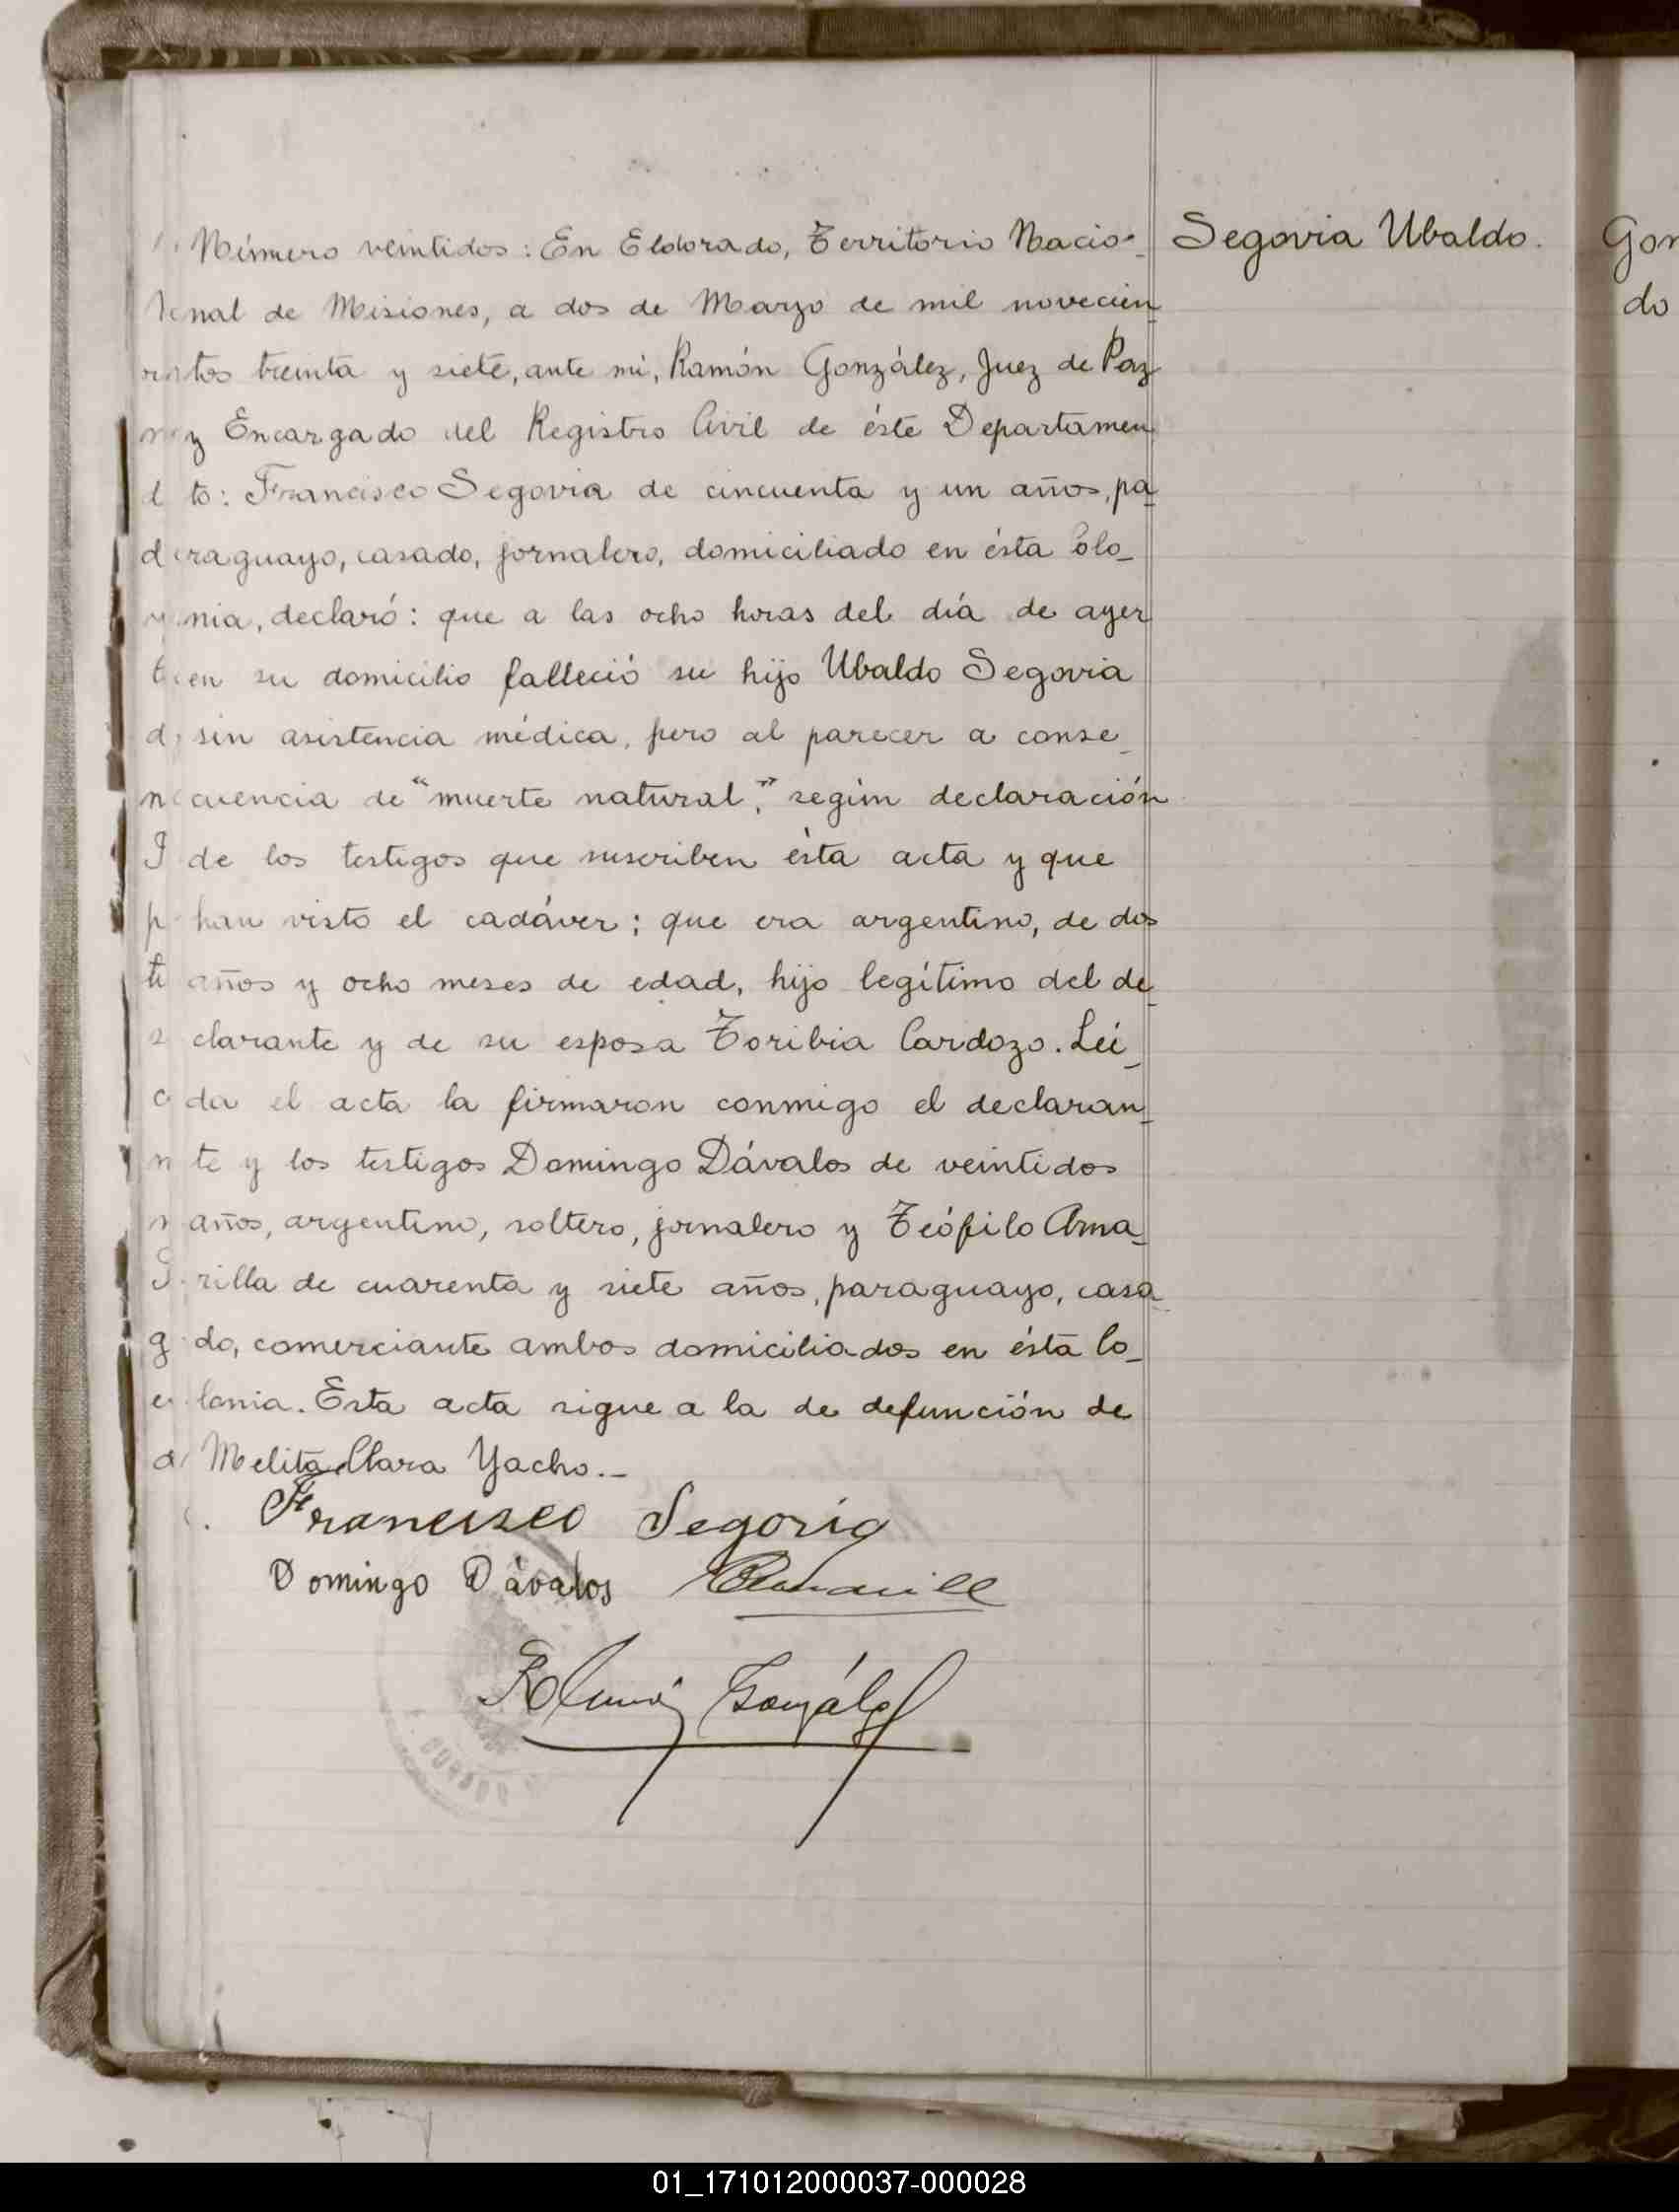 Número veintidos: En Eldorado, Territorio Nacio-
nal de Misiones, a dos de Marzo de mil novecien_
tos treinta y siete, ante mi, Ramón González, Juez de Paz
y Encargado del Registro Civil de éste Departamen_
to: Francisco Segovia de cincuenta y un años, pa_
raguayo, casado, jornalero, domiciliado en ésta Colo_
nia, declaró: que a las ocho horas del día de ayer
en su domicilio falleció su hijo Ubaldo Segovia
sin asistencia médica, pero al parecer a conse_
cuencia de "muerte natural", según declaración
de los testigos que suscriben ésta acta y que
han visto el cadáver; que era argentino, de dos
años y ocho meses de edad, hijo legítimo del de_
clarante y de su esposa Toribia Cardozo. Leí_
da el acta la firmaron conmigo el declaran_
te y los testigos Domingo Dávalos de veintidos
años, argentino, soltero, jornalero y Teófilo Ama_
rilla de cuarenta y siete años, paraguayo, casa_
do, comerciante ambos domiciliados en ésta Co_
lonia. Esta acta sigue a la de defunción de
Melita Clara Yacho._
Francisco Segovia
Domingo Dávalos
Ramón González
Segovia Ubaldo.
Gon
do
01_171012000037-000028